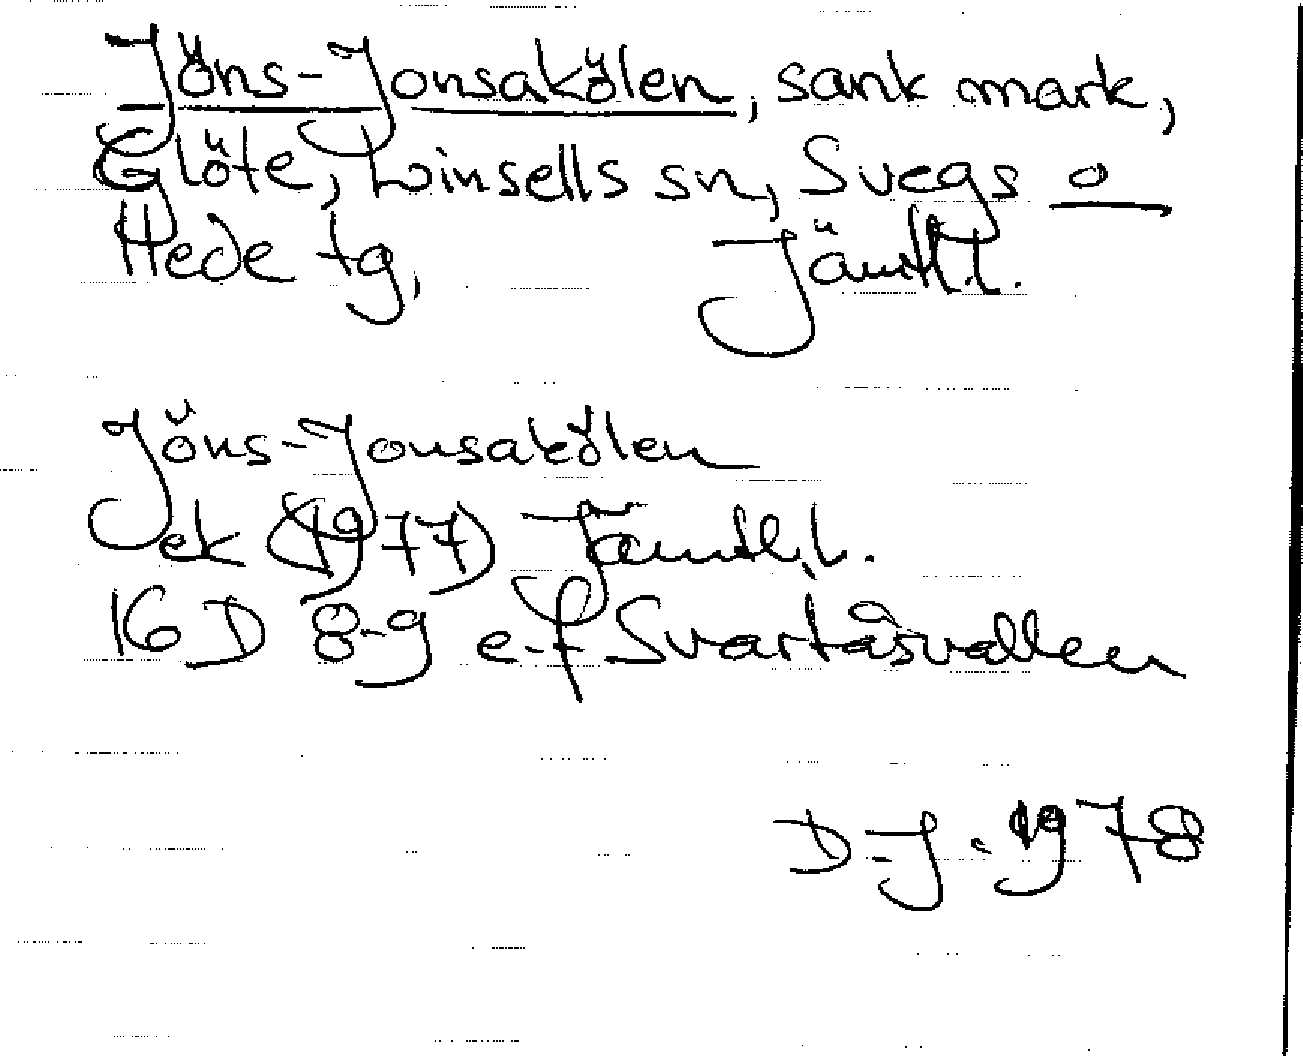 Jöns-Jonsakölen, sank mark,
Glöte, Linsells sn, Svegs o
Hede tg, Jämtl.l.
Jöns-Jonsakölen
ek (1977) Jämtl.l.
16 D 8-9 e-f Svartåsvallen
D-J. 1978